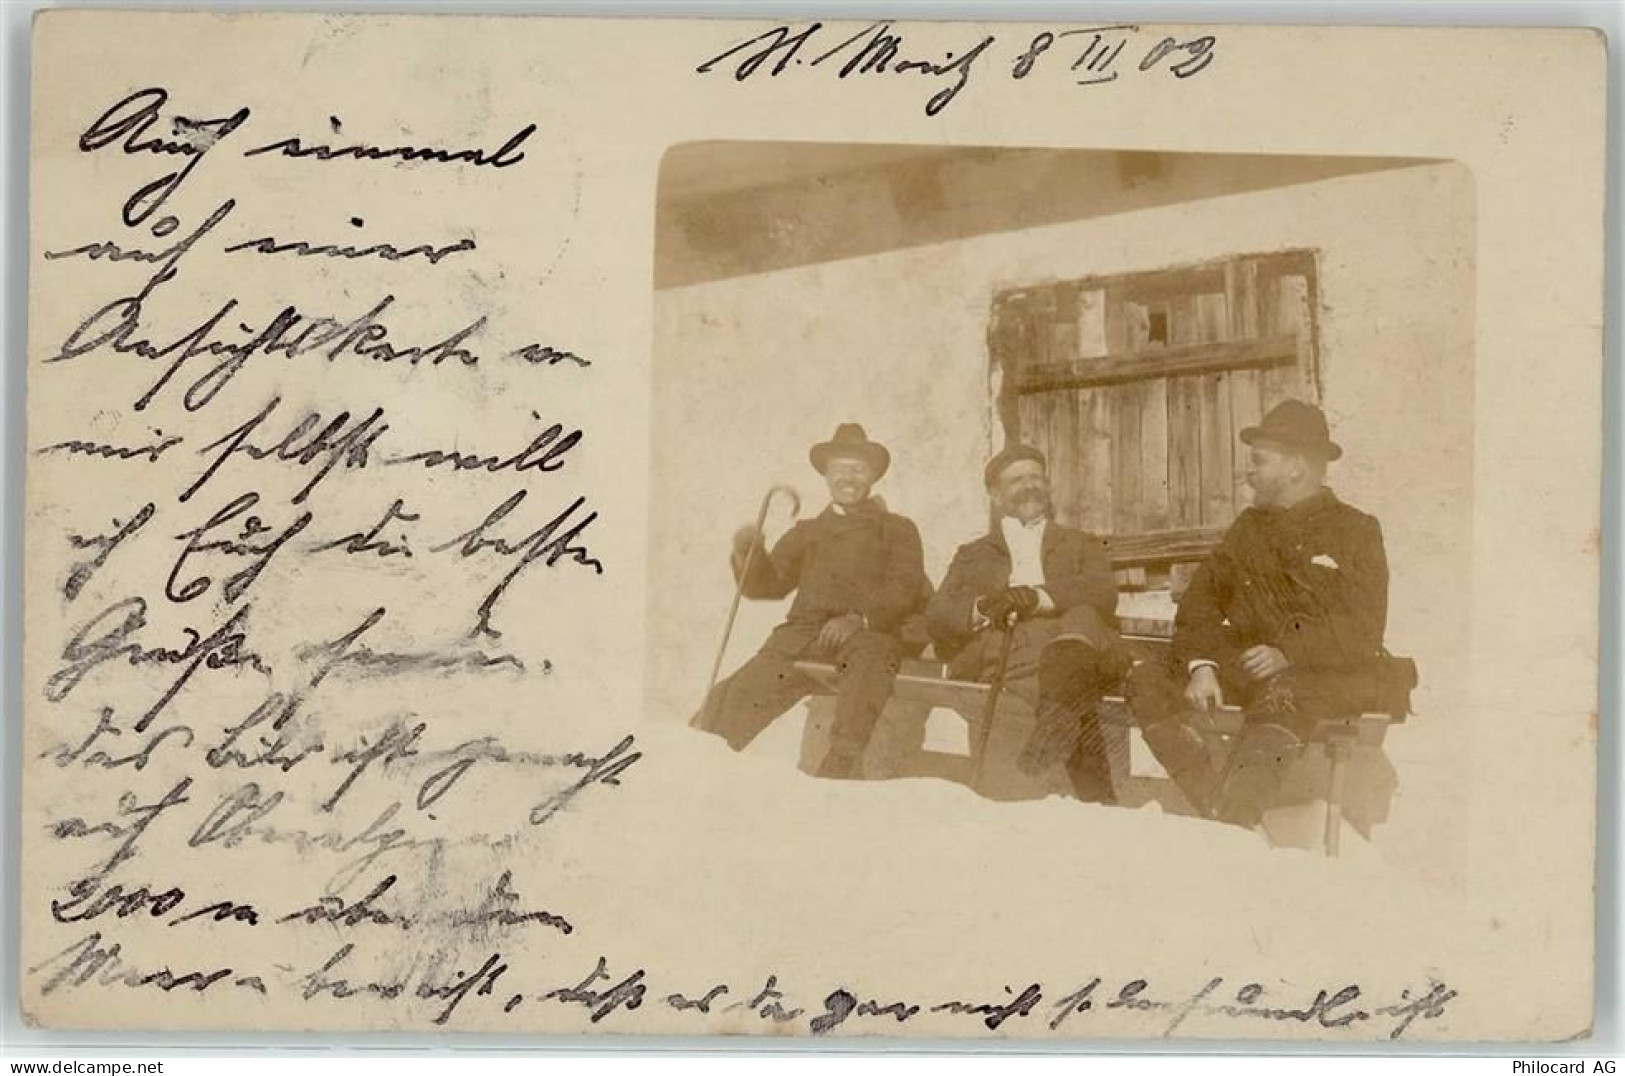 St. Moritz 8 III 02
Auch einmal
auf einer
Ansichtskarte von
mir selbst will
ich Euch die besten
Grüße senden.
das Bild ist gemacht
auf Oberalpina
2000 m über dem
Meer u beweist, daß es da gar nicht so ist
Philocard AG